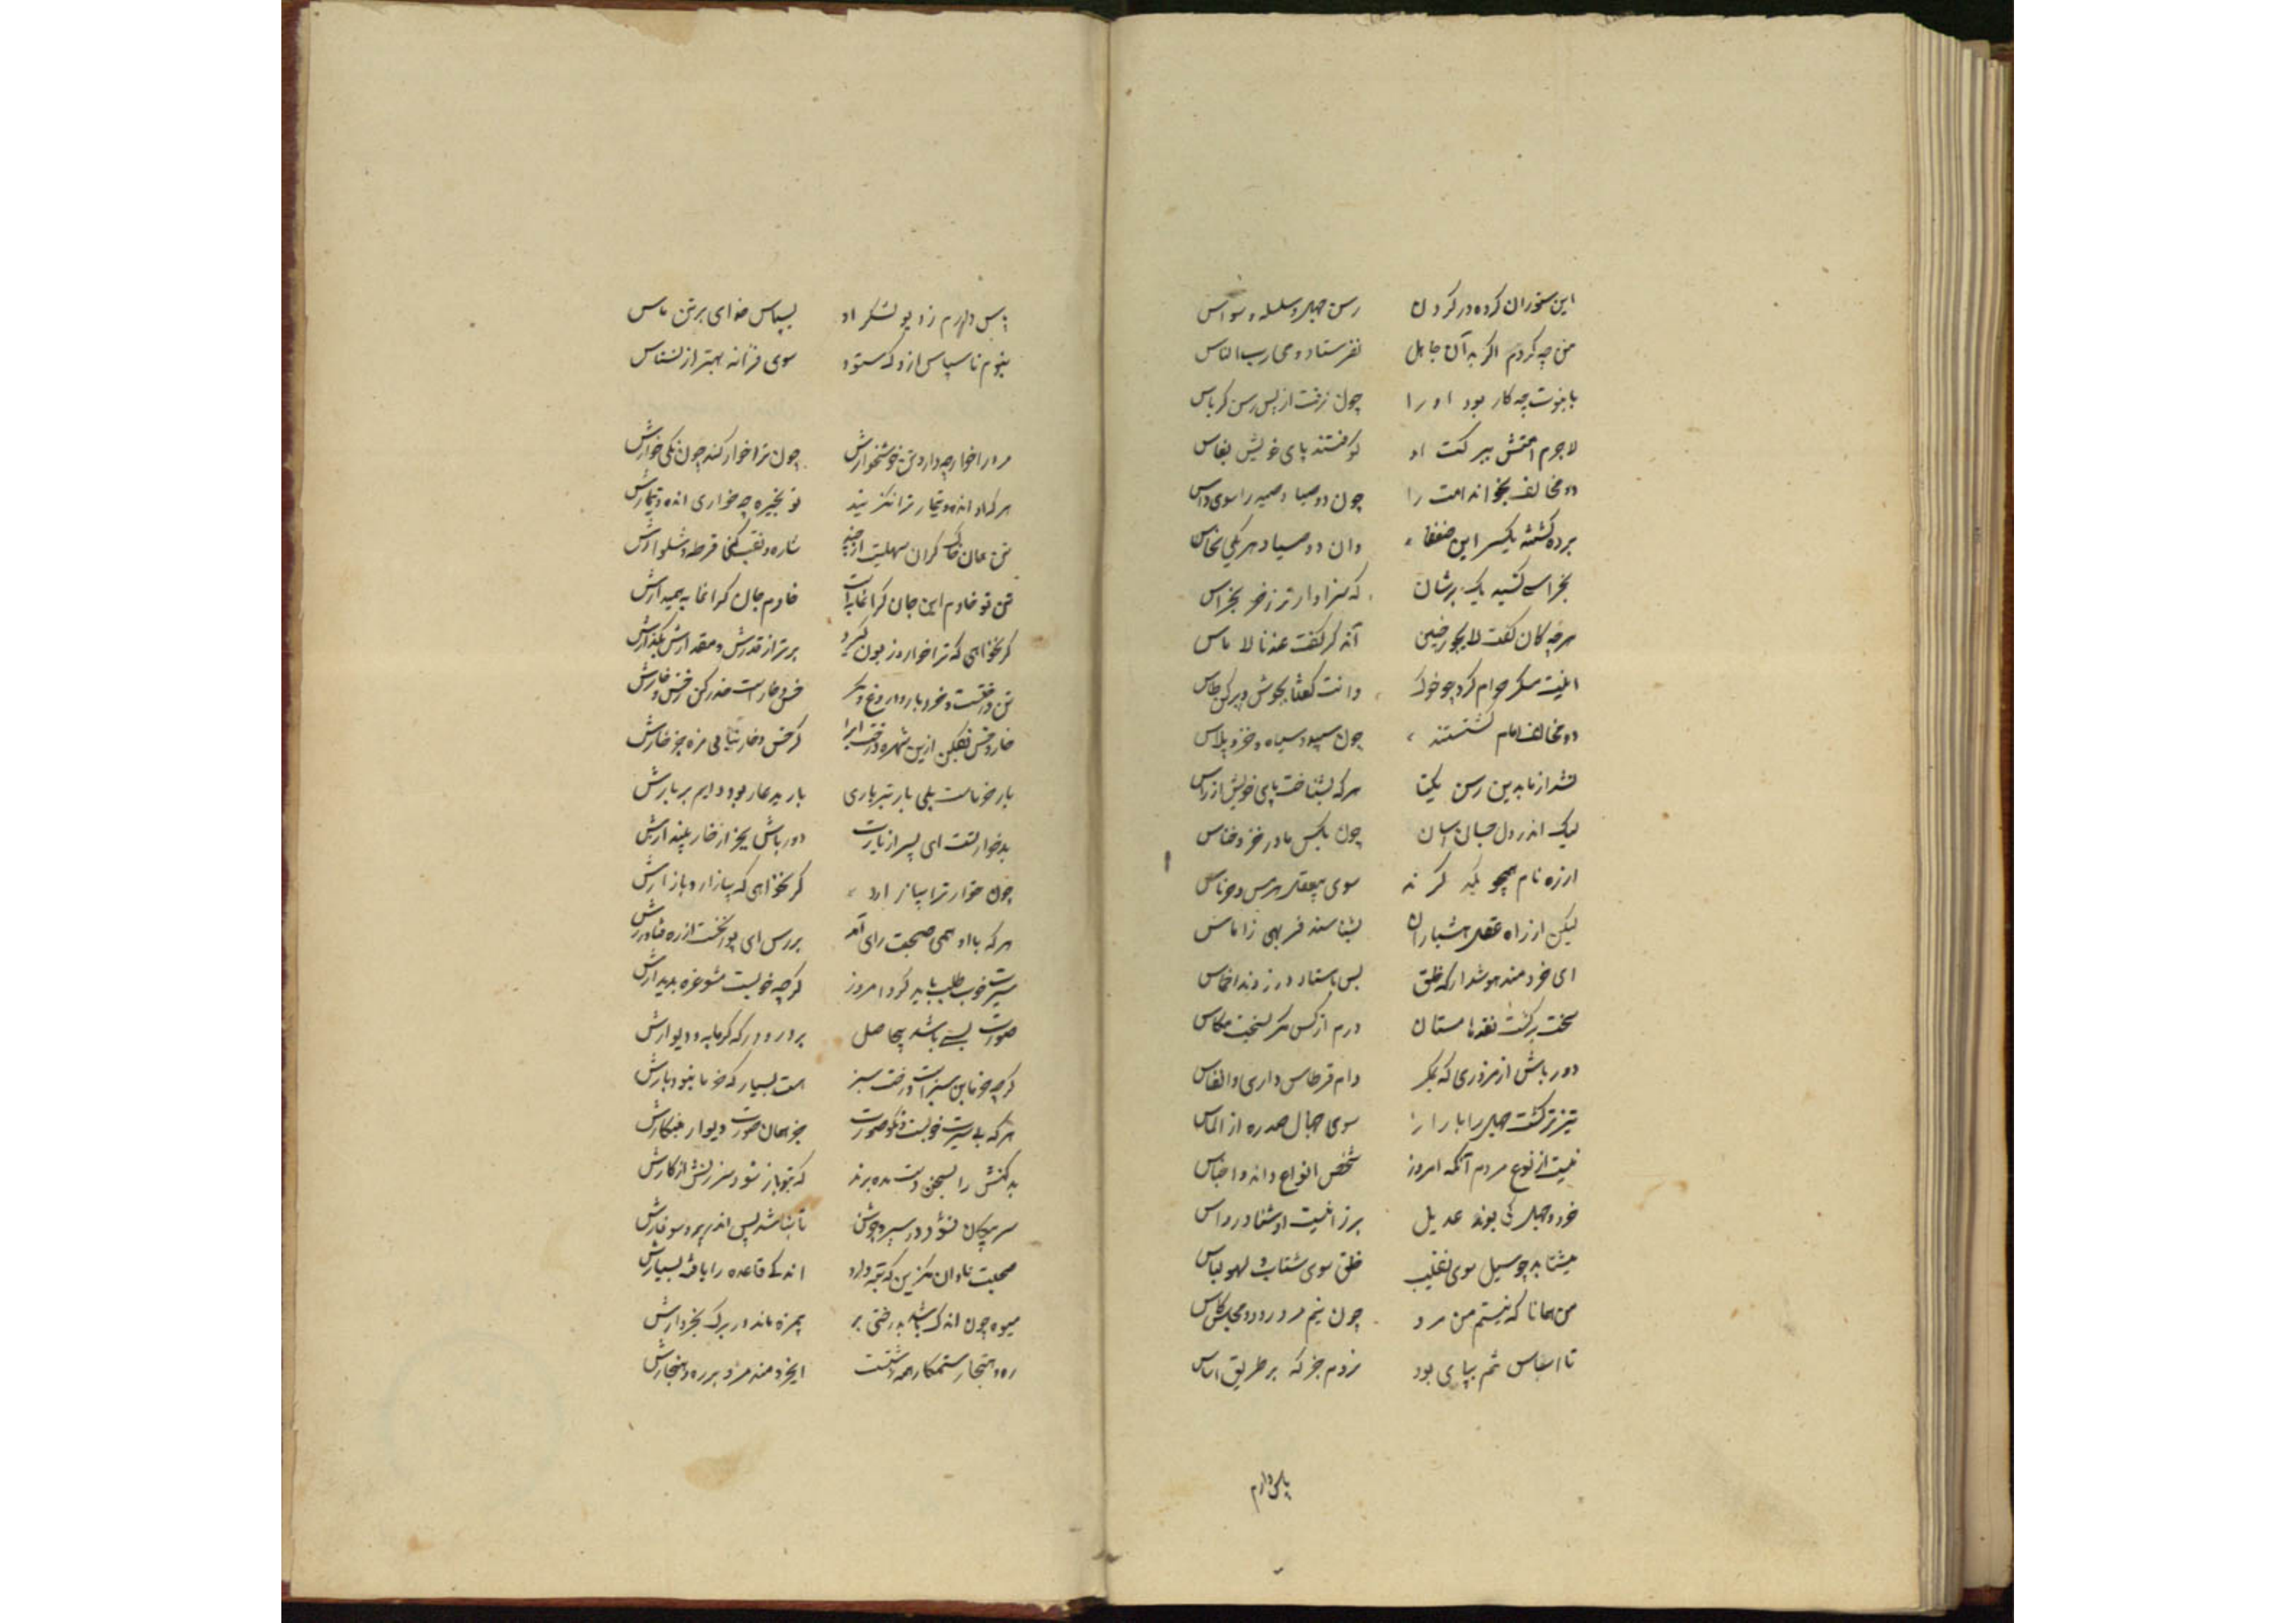 این سخوران کرده در گردن رسن جهل و سلسله وسواس
من چه کردم اگر بدان جاهل نفرستاد وحی رب الناس
با نبوت چه کار بود او را چون برفت از پس رسن کرباس
لاجرم امتش ببرکت او کوفتند پای خویش بفاس
دو مخالف بخواند امت را چون دو صیاد صید را سوی داس
برده گشته یکسر این ضعفا وان دو صیاد هر یکی نخاس
بخراس کشید یک برشان که سزاوارتر ز خر بخراس
هر چه کان گفت لایجوز چنین آن دگر گفت عندنا لا باس
اینت مسکر حرام کرد چو خوک وانت گفتا بجوش و پر کن طاس
دو مخالف امام گشتستند چون سپید و سیاه و خز و پلاس
نشد از ما بدین رسن یکتا هر که بشناخت پای خویش از راس
لیک اندر دل خسان آسان چون بکس مادر خز و خناس
ارزه نام همچو یکدگرند سوی بیعقل هرمس و هرماس
لیکن از راه عقل هشیاران بشناسند فربهی ز آماس
ای خردمند هوش دار که خلق بس باستاد درزدند اخماس
سخت برگشت نقد ها مستان درم از کس مگر بسخت مکاس
دور باش از مزوری که بمکر دام قرطاس داری و انفاس
تیزتر گشت جهل را بازار سوی جهال صد ره از الماس
نیست از نوع مردم آنکه امروز شخص انواع داند و اجناس
خود و جهل کی بوند عدیل بر ز انیست او شنا در داس
میشتابد چو سیل سوی نشیب خلق سوی شتاب و لهو لباس
من همانا که نیستم من مرد چون نیم مرد رود و مجلس و کاس
تا اساس تنم بپای بود نروم جز که بر طریق اساس
پاس دارم
پاس دارم ز دیو لشکر او بسپاس خدای بر تن پاس
نبوم ناسپاس ازو که ستود سوی فرزانه بهتر از نسناس
مر را خوار چه دارد تن خوشخوارش چون ترا خوار کند چون نکنی خوارش
هر که او انده و تیمار ترا نگزیند تو بخیره چه خواری انده و تیمارش
تن همان خاک گران سیهست ارچند شاره و نقب کنی قرطه و شلوارش
تن تو خادم این جان گرانمایه است خادم جان گرانمایه همیدارش
گر نخواهی که ترا خوار و زبون گیرد برتر از قدرش و مقدارش بگذارش
تن درختست و خرد بار و دروغ و مکر خس و خار است حذر کن ز خس و خارش
خار و خس بفکن ازین شهره درخت ایرا کز خس و خار نیابی مزه جز خارش
بار خرماست یکی بار تن باری بار بد عار بود دایم بر بارش
بد خوار نتت ای پسر از یارت دور باش بجز از خار مپندارش
چون خوار ترا بیازارد گر نخواهی که بیازارد بازارش
هر که با او همی صحبت رای آید بررس ای پور نخست از ره و رفتارش
سیرت خوب طلب باید کرد امروز گر چه خوبست مشو غره بدیدارش
صورت بسی باشد بیحاصل بر در و درگه گرمابه و دیوارش
گر چه خرمابن سبزست درخت سبز هست بسیار که خرما نبود بارش
هر که بی سیرت خوبست و نکو صورت جز همان صورت دیوار مینگارش
بد کنش را بسخن دست مده بر بد که بتو باز شود سرزنش از کارش
سر پیکان نشود در سپر و جوشن تا نباشد پس اندر پر و سوفارش
صحبت نادان مگزین که تبه دارد اندکی فایده را یافه بسیارش
میوه چون اندک باشد بدرختی بر بیمزه ماند در برگ بخروارش
ره و هنجار ستمکاره همه زشتست ای خردمند مرو بر ره و هنجارش